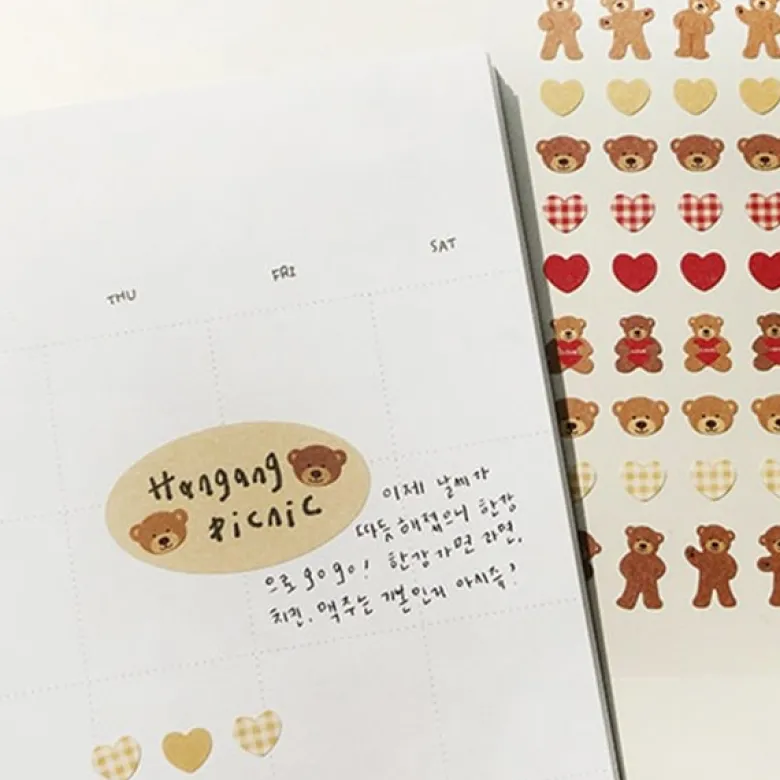 THU
FRI
SAT
Hangang
picnic
이제 날씨가
따듯해졌으니 한강
으로 gogo! 한강가면 라면,
치킨, 맥주는 기본인거 아시죠?